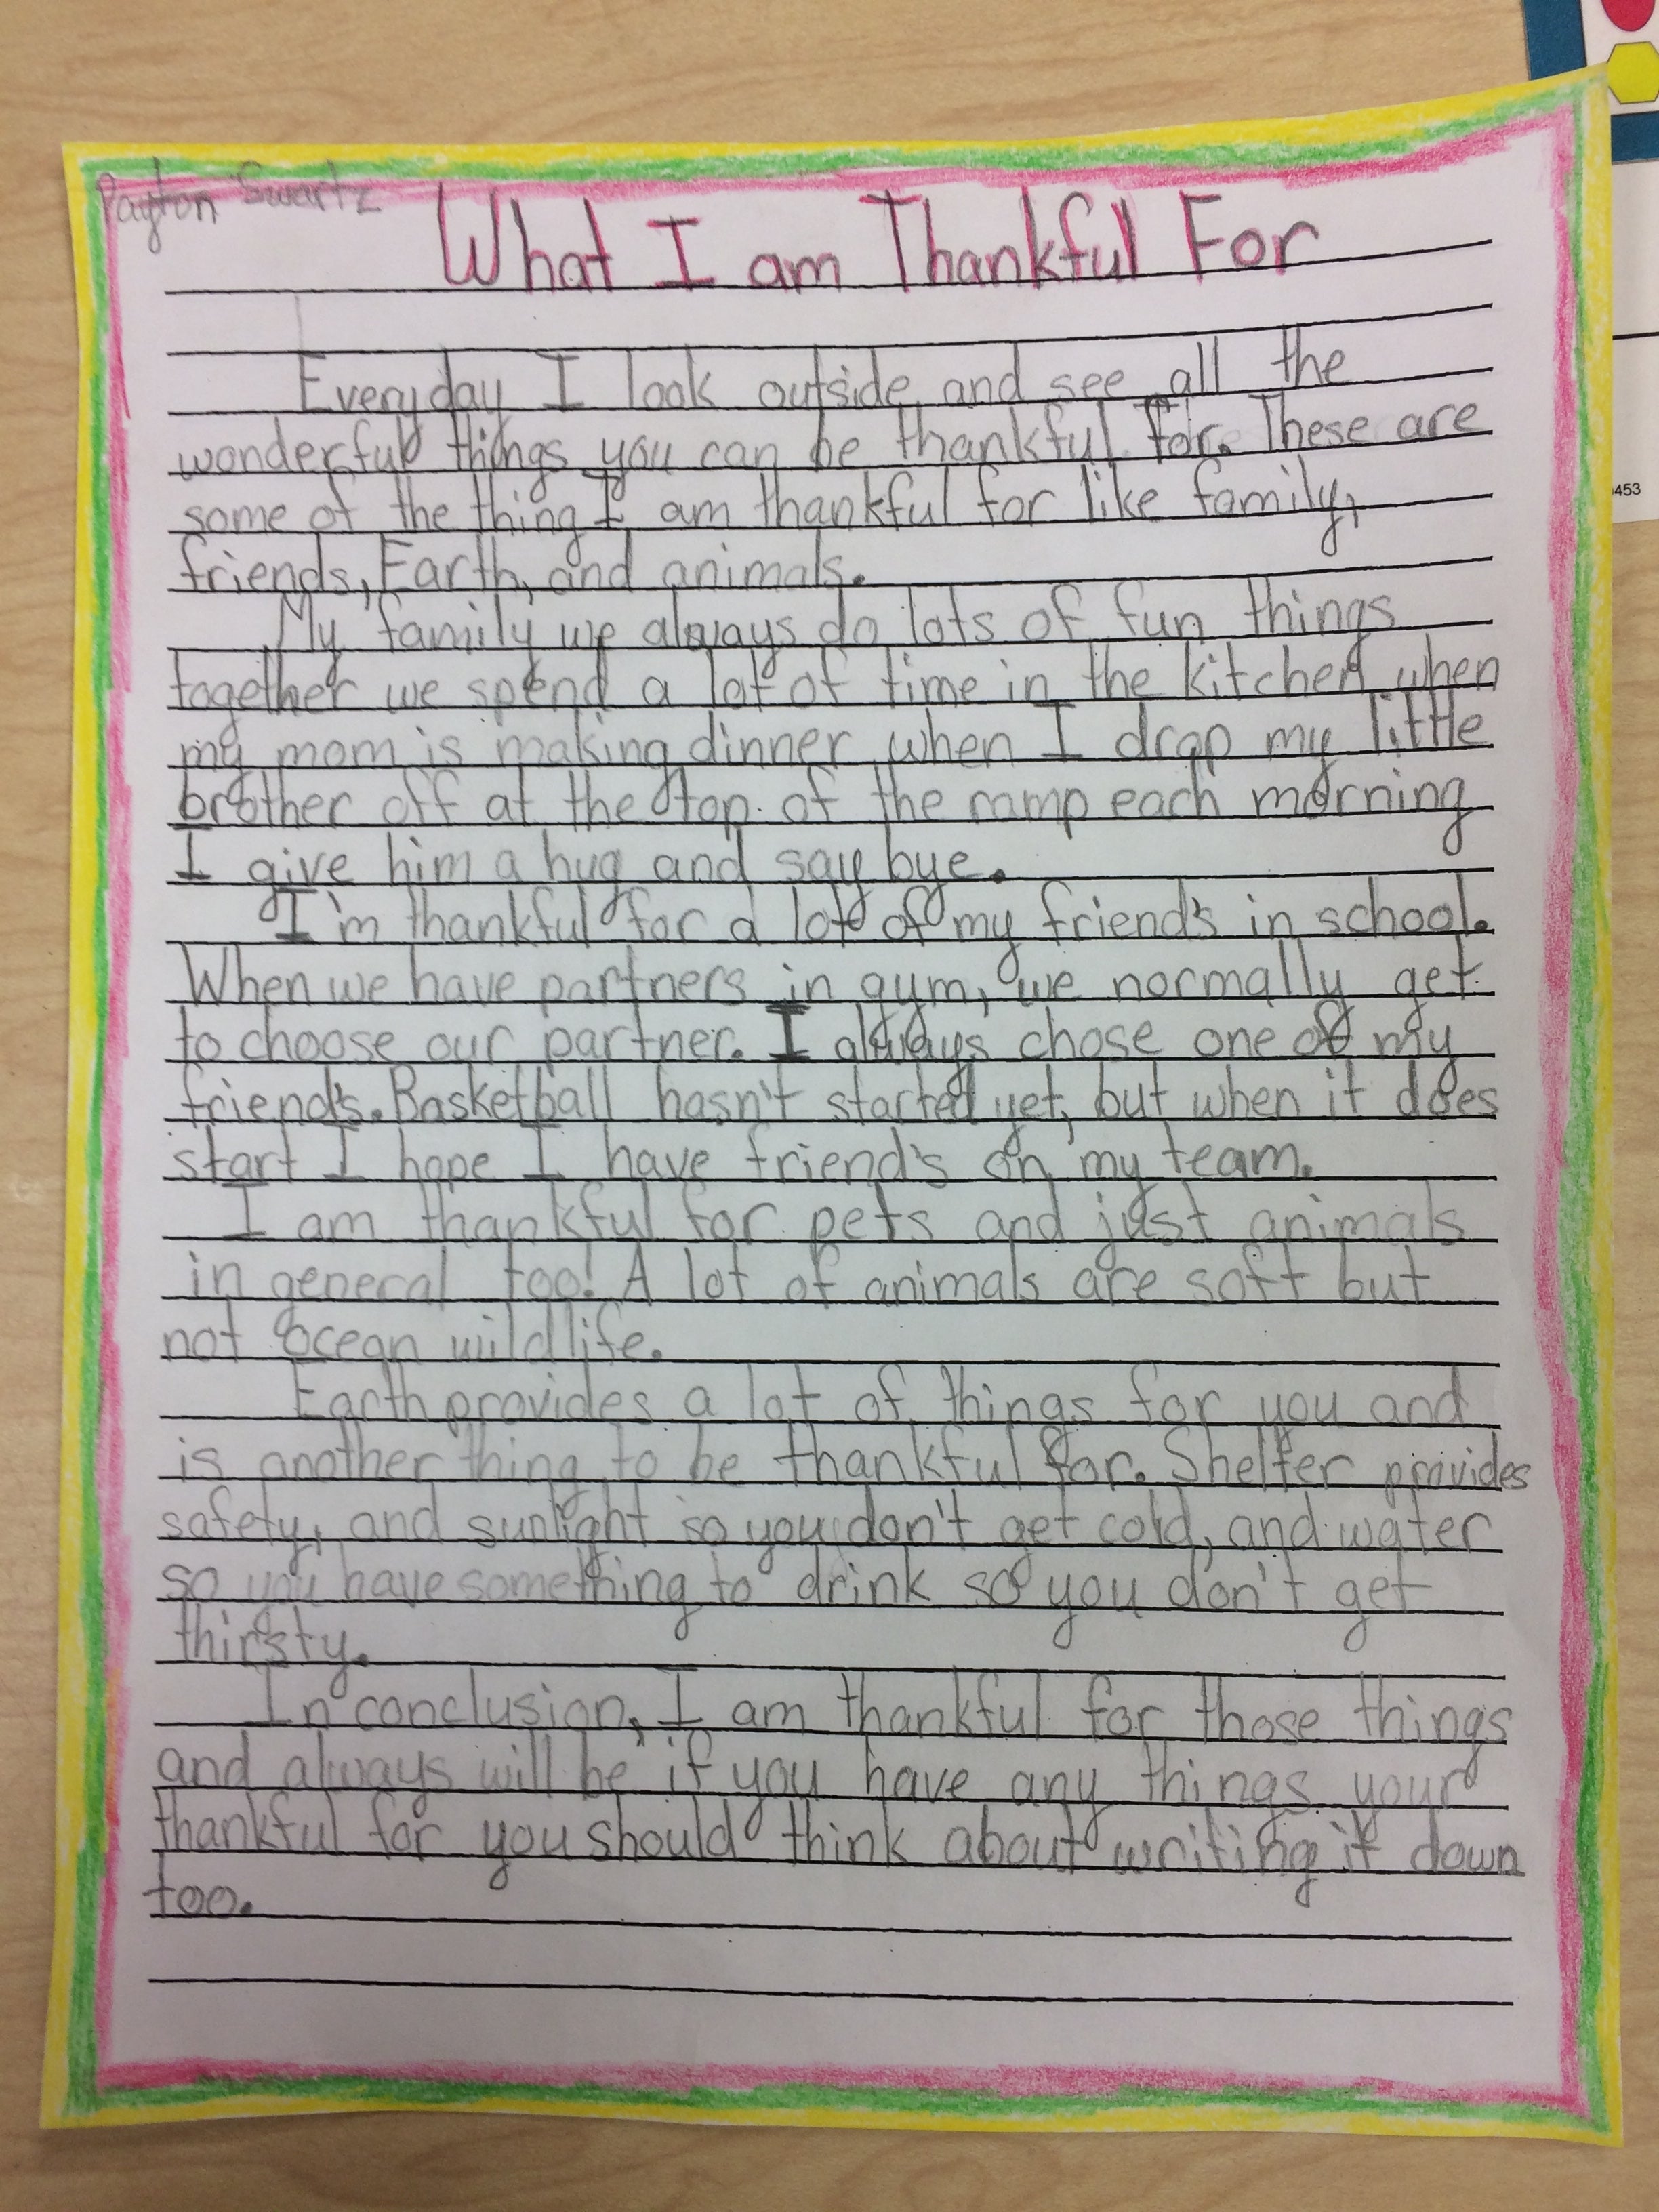 Payton Swartz
What I am Thankful For
Everyday I look outside and see all the
wonderful things you can be thankful for. These are
some of the thing I am thankful for like family,
friends, Earth, and animals.
My family we always do lots of fun things
together we spend a lot of time in the kitchen when
my mom is making dinner when I drop my little
brother off at the top of the ramp each morning
I give him a hug and say bye.
I'm thankful for a lot of my friend's in school.
When we have partners in gym, we normally get
to choose our partner. I always chose one of my
friend's. Basketball hasn't started yet, but when it does
start I hope I have friend's on my team.
I am thankful for pets and just animals
in general too! A lot of animals are soft but
not ocean wildlife.
Earth provides a lot of things for you and
is another thing to be thankful for. Shelter provides
safety, and sunlight so you don't get cold, and water
so you have something to drink so you don't get
thirsty.
In conclusion, I am thankful for those things
and always will be if you have any things your
thankful for you should think about writing it down
too.
453